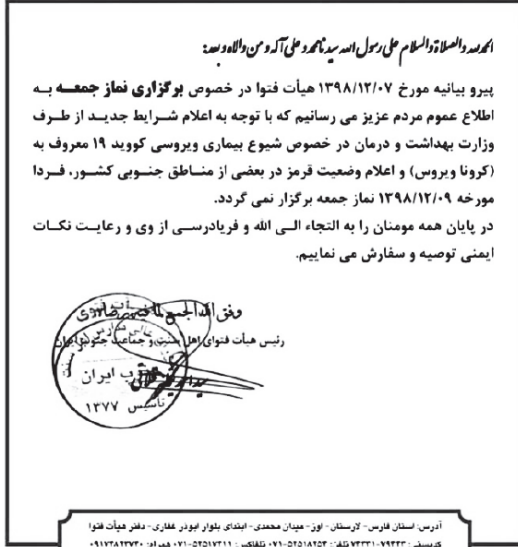 الحمدلله والصلاة والسلام علی رسول الله سیدنا محمد و علی آله و من والاه و بعد:
پیرو بیانیه مورخ ۱۳۹۸/۱۲/۰۷ هیأت فتوا در خصوص برگزاری نماز جمعـــه بــه
اطلاع عموم مردم عزیز می رسانیم که با توجه به اعلام شـرایط جدیـد از طـرف
وزارت بهداشت و درمان در خصوص شیوع بیماری ویروسی کووید ۱۹ معروف به
(کرونا ویروس) و اعلام وضعیت قرمز در بعضی از منـاطق جنـوبی کشـور، فـردا
مورخه ۱۳۹۸/۱۲/۰۹ نماز جمعه برگزار نمی گردد.
در پایان همه مومنان را به التجاء الـی الله و فریادرسـی از وی و رعایـت نکـات
ایمنی توصیه و سفارش می نماییم.
وفق الله الجمیع لما فیه
رئیس هیأت فتوای اهل سنت و جماعت جنوب ایران
ایران
تأسیس ۱۳۷۷
آدرس: استان فارس- لارستان - اوز- میدان محمدی- ابتدای بلوار ابوذر غفاری- دفتر هیأت فتوا
کدپستی: ۷۹۴۴۳-۷۴۳۳۱ تلفن: ۵۲۵۱۸۲۵۴-۰۷۱ تلفاکس: ۵۲۵۱۷۳۱۱-۰۷۱ همراه: ۰۹۱۷۳۸۲۳۷۳۰